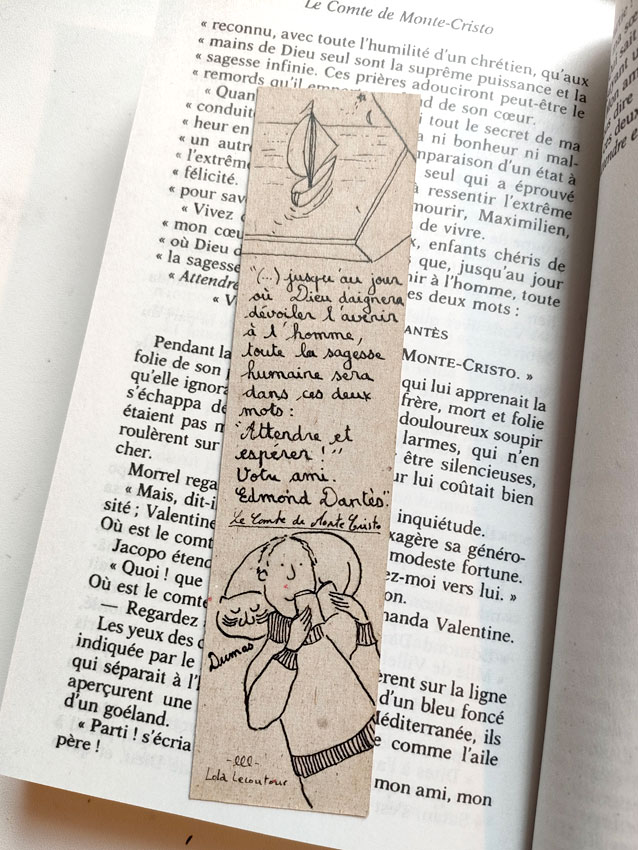 Le Comte de Monte-Cristo
« reconnu, avec toute l'humilité d'un chrétien, qu'aux
« mains de Dieu seul sont la suprême puissance et la
« sagesse infinie. Ces prières adouciront peut-être le
« remords qu'il emport d de son cœur.
« Quan i tout le secret de ma
« conduit a ni bonheur ni mal-
« heur en mparaison d'un état à
« un autr seul qui a éprouvé
« l'extrêm à ressentir l'extrême
« félicité. mourir, Maximilien,
« pour sav de vivre.
« Vivez x, enfants chéris de
« mon cœu que, jusqu'au jour
« où Dieu d nir à l'homme, toute
« la sagess es deux mots :
« Attendre
« V
ANTÈS
MONTE-CRISTO. »
"(...) jusqu'au jour
où Dieu daignera
dévoiler l'avenir
à l'homme,
toute la sagesse
humaine sera
dans ces deux
mots :
"Attendre et
espérer !"
Votre ami.
Edmond Dantès".
Le Comte de Monte Cristo
Dumas
-lll-
Lola Lecoutour
Pendant la qui lui apprenait la
folie de son frère, mort et folie
qu'elle ignora douloureux soupir
s'échappa de larmes, qui n'en
étaient pas être silencieuses,
roulèrent sur r lui coûtait bien
cher.
Morrel rega inquiétude.
« Mais, dit-i xagère sa généro-
sité ; Valentine modeste fortune.
Où est le comt ez-moi vers lui. »
Jacopo éten on.
« Quoi ! que manda Valentine.
Où est le comte
— Regardez
Les yeux des èrent sur la ligne
indiquée par le d'un bleu foncé
qui séparait à l' Méditerranée, ils
aperçurent une e comme l'aile
d'un goéland.
« Parti ! s'écria mon ami, mon
père !